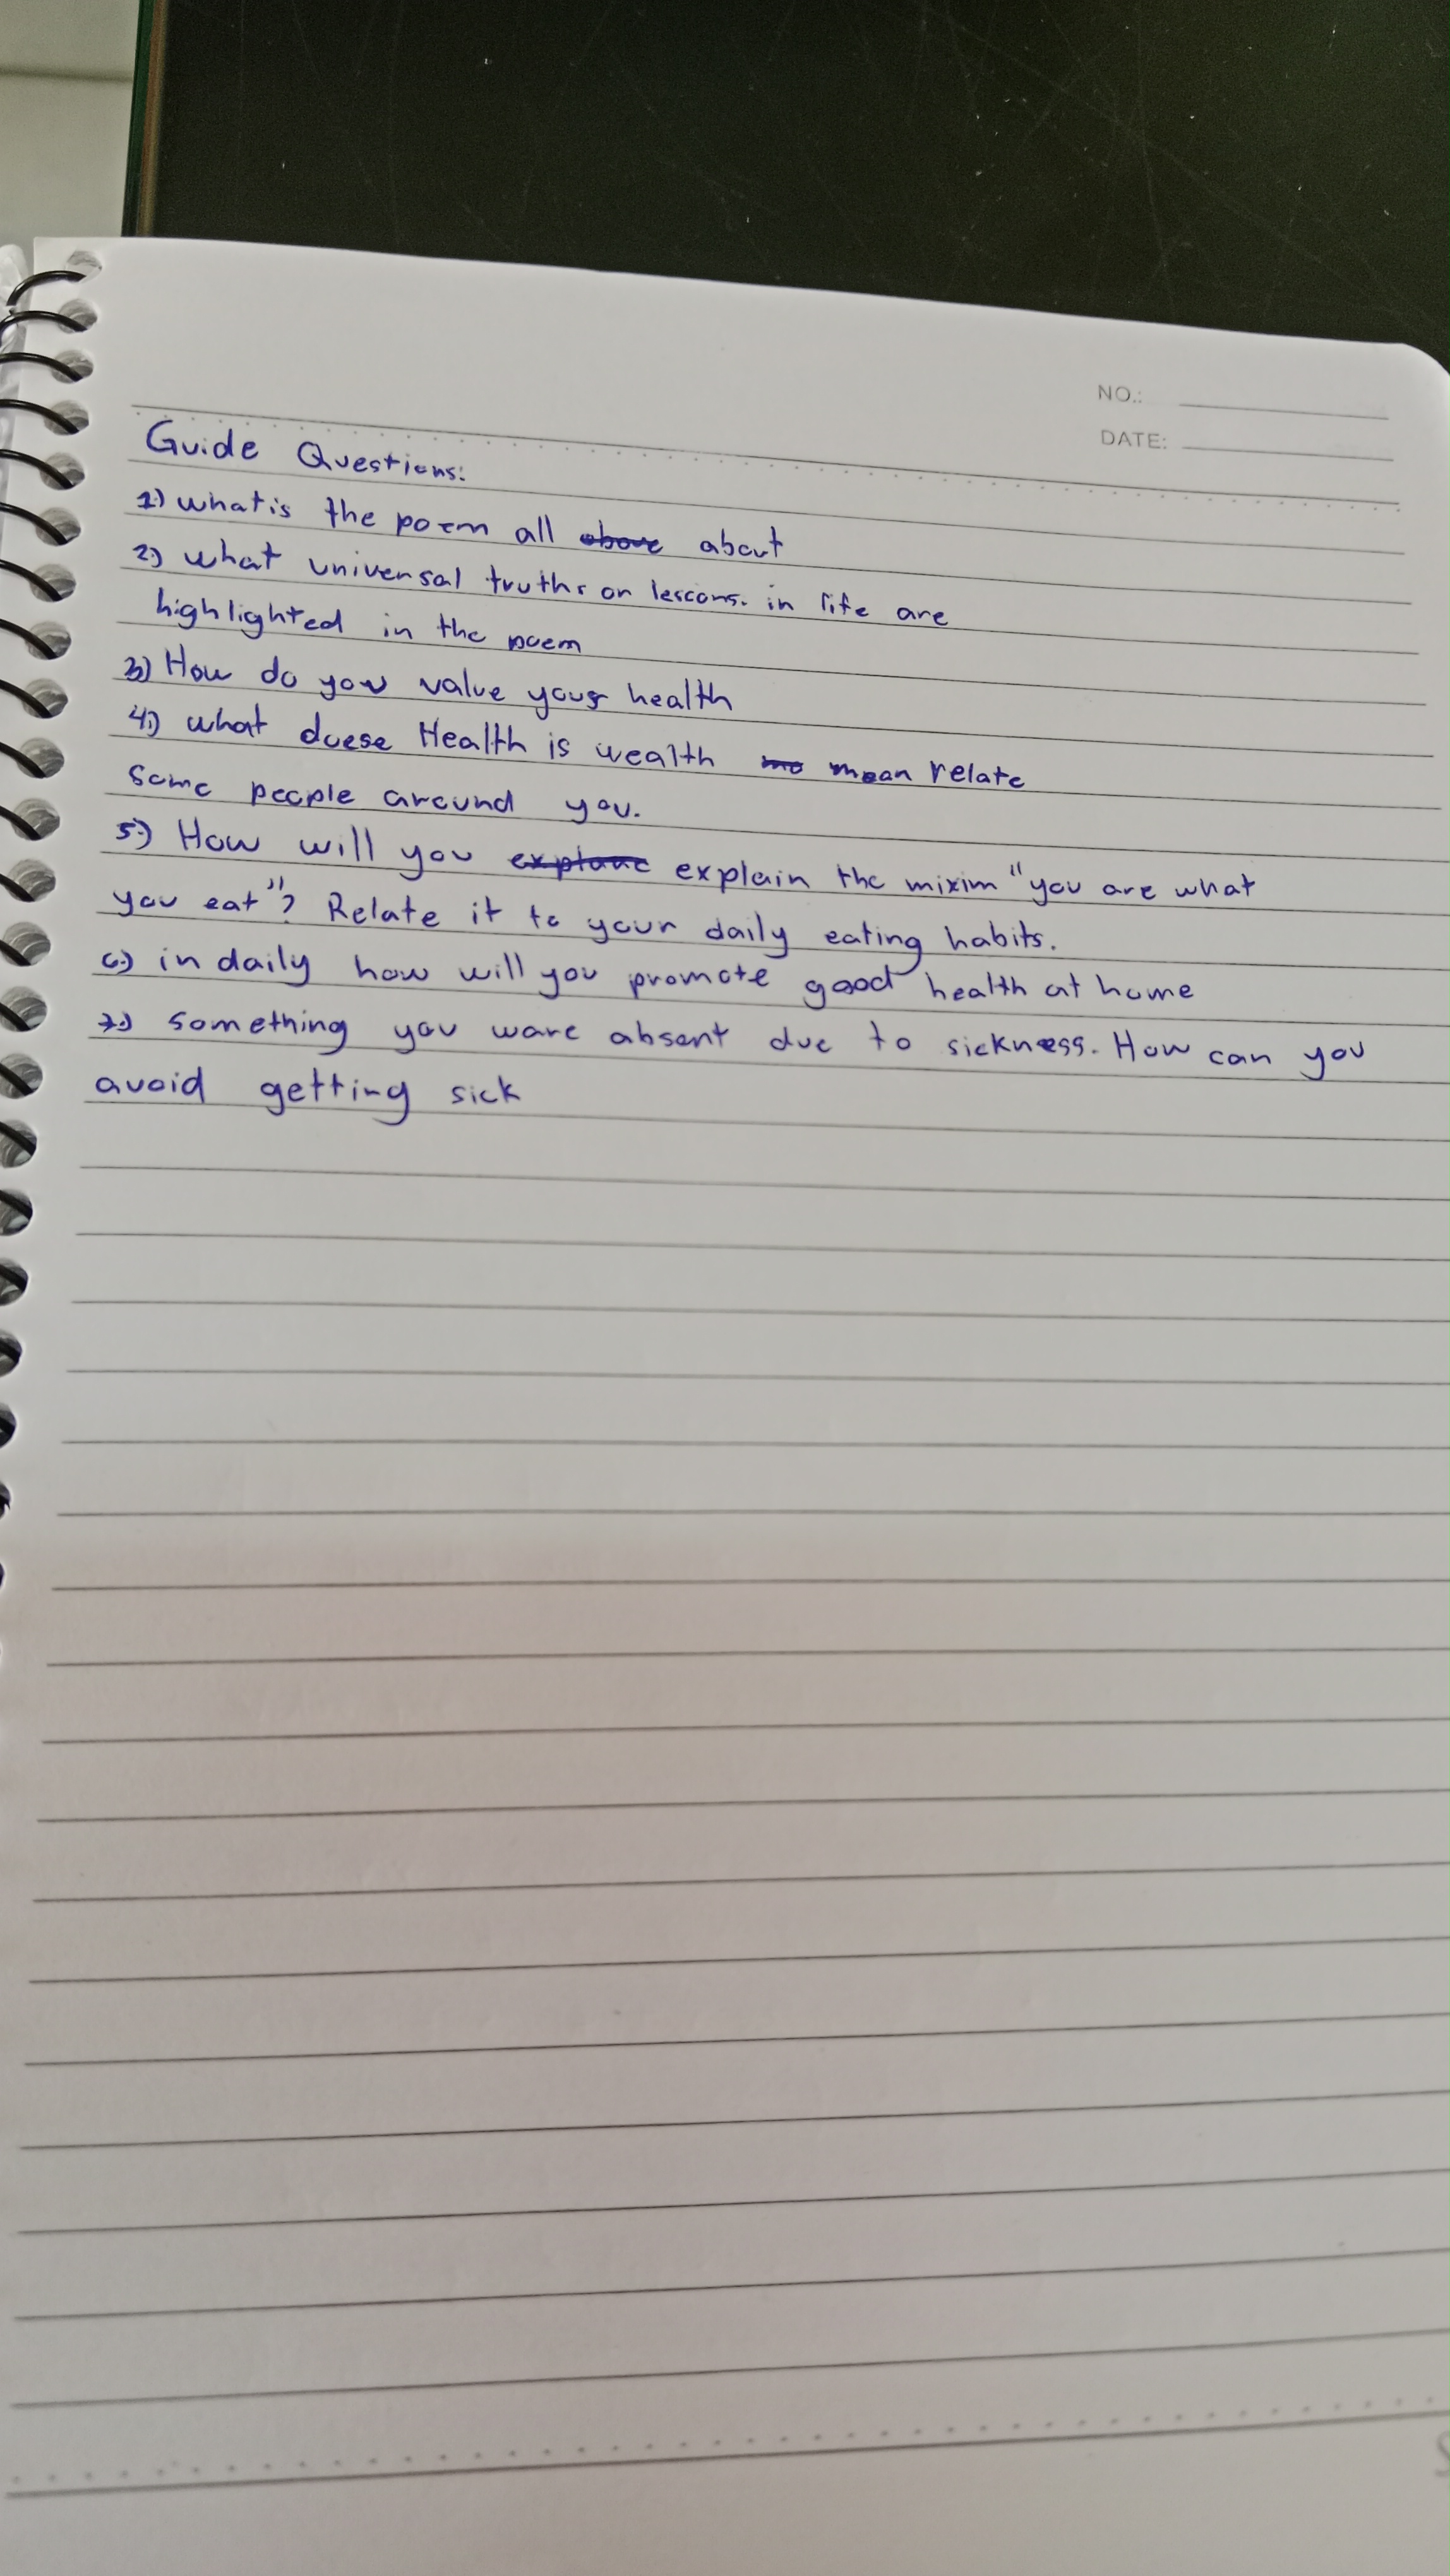 NO.:
DATE:
Guide Questions:
1.) what is the poem all above about
2.) what universal truths or lescons. in life are
highlighted in the poem
3.) How do you value your health
4.) what doese Health is wealth mo mean relate
some people around you.
5.) How will you explane explain the mixim "you are what
you eat"? Relate it to your daily eating habits.
6.) in daily how will you promote good health at home
7.) something you ware absent due to sickness. How can you
avoid getting sick